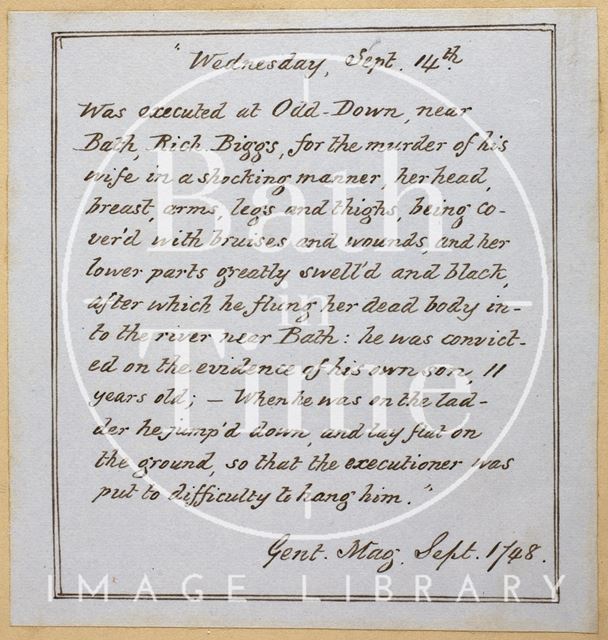 "Wednesday, Sept. 14th.
Was executed at Odd-Down, near
Bath, Rich. Biggs, for the murder of his
wife in a shocking manner, her head,
breast, arms, legs and thighs, being co-
ver'd with bruises and wounds, and her
lower parts greatly swell'd and black,
after which he flung her dead body in-
to the river near Bath: he was convict-
ed on the evidence of his own son, 11
years old; — When he was on the lad-
der he jump'd down, and lay flat on
the ground, so that the executioner was
put to difficulty to hang him."
Gent. Mag. Sept. 1748.
Bath
in
Time
IMAGE LIBRARY